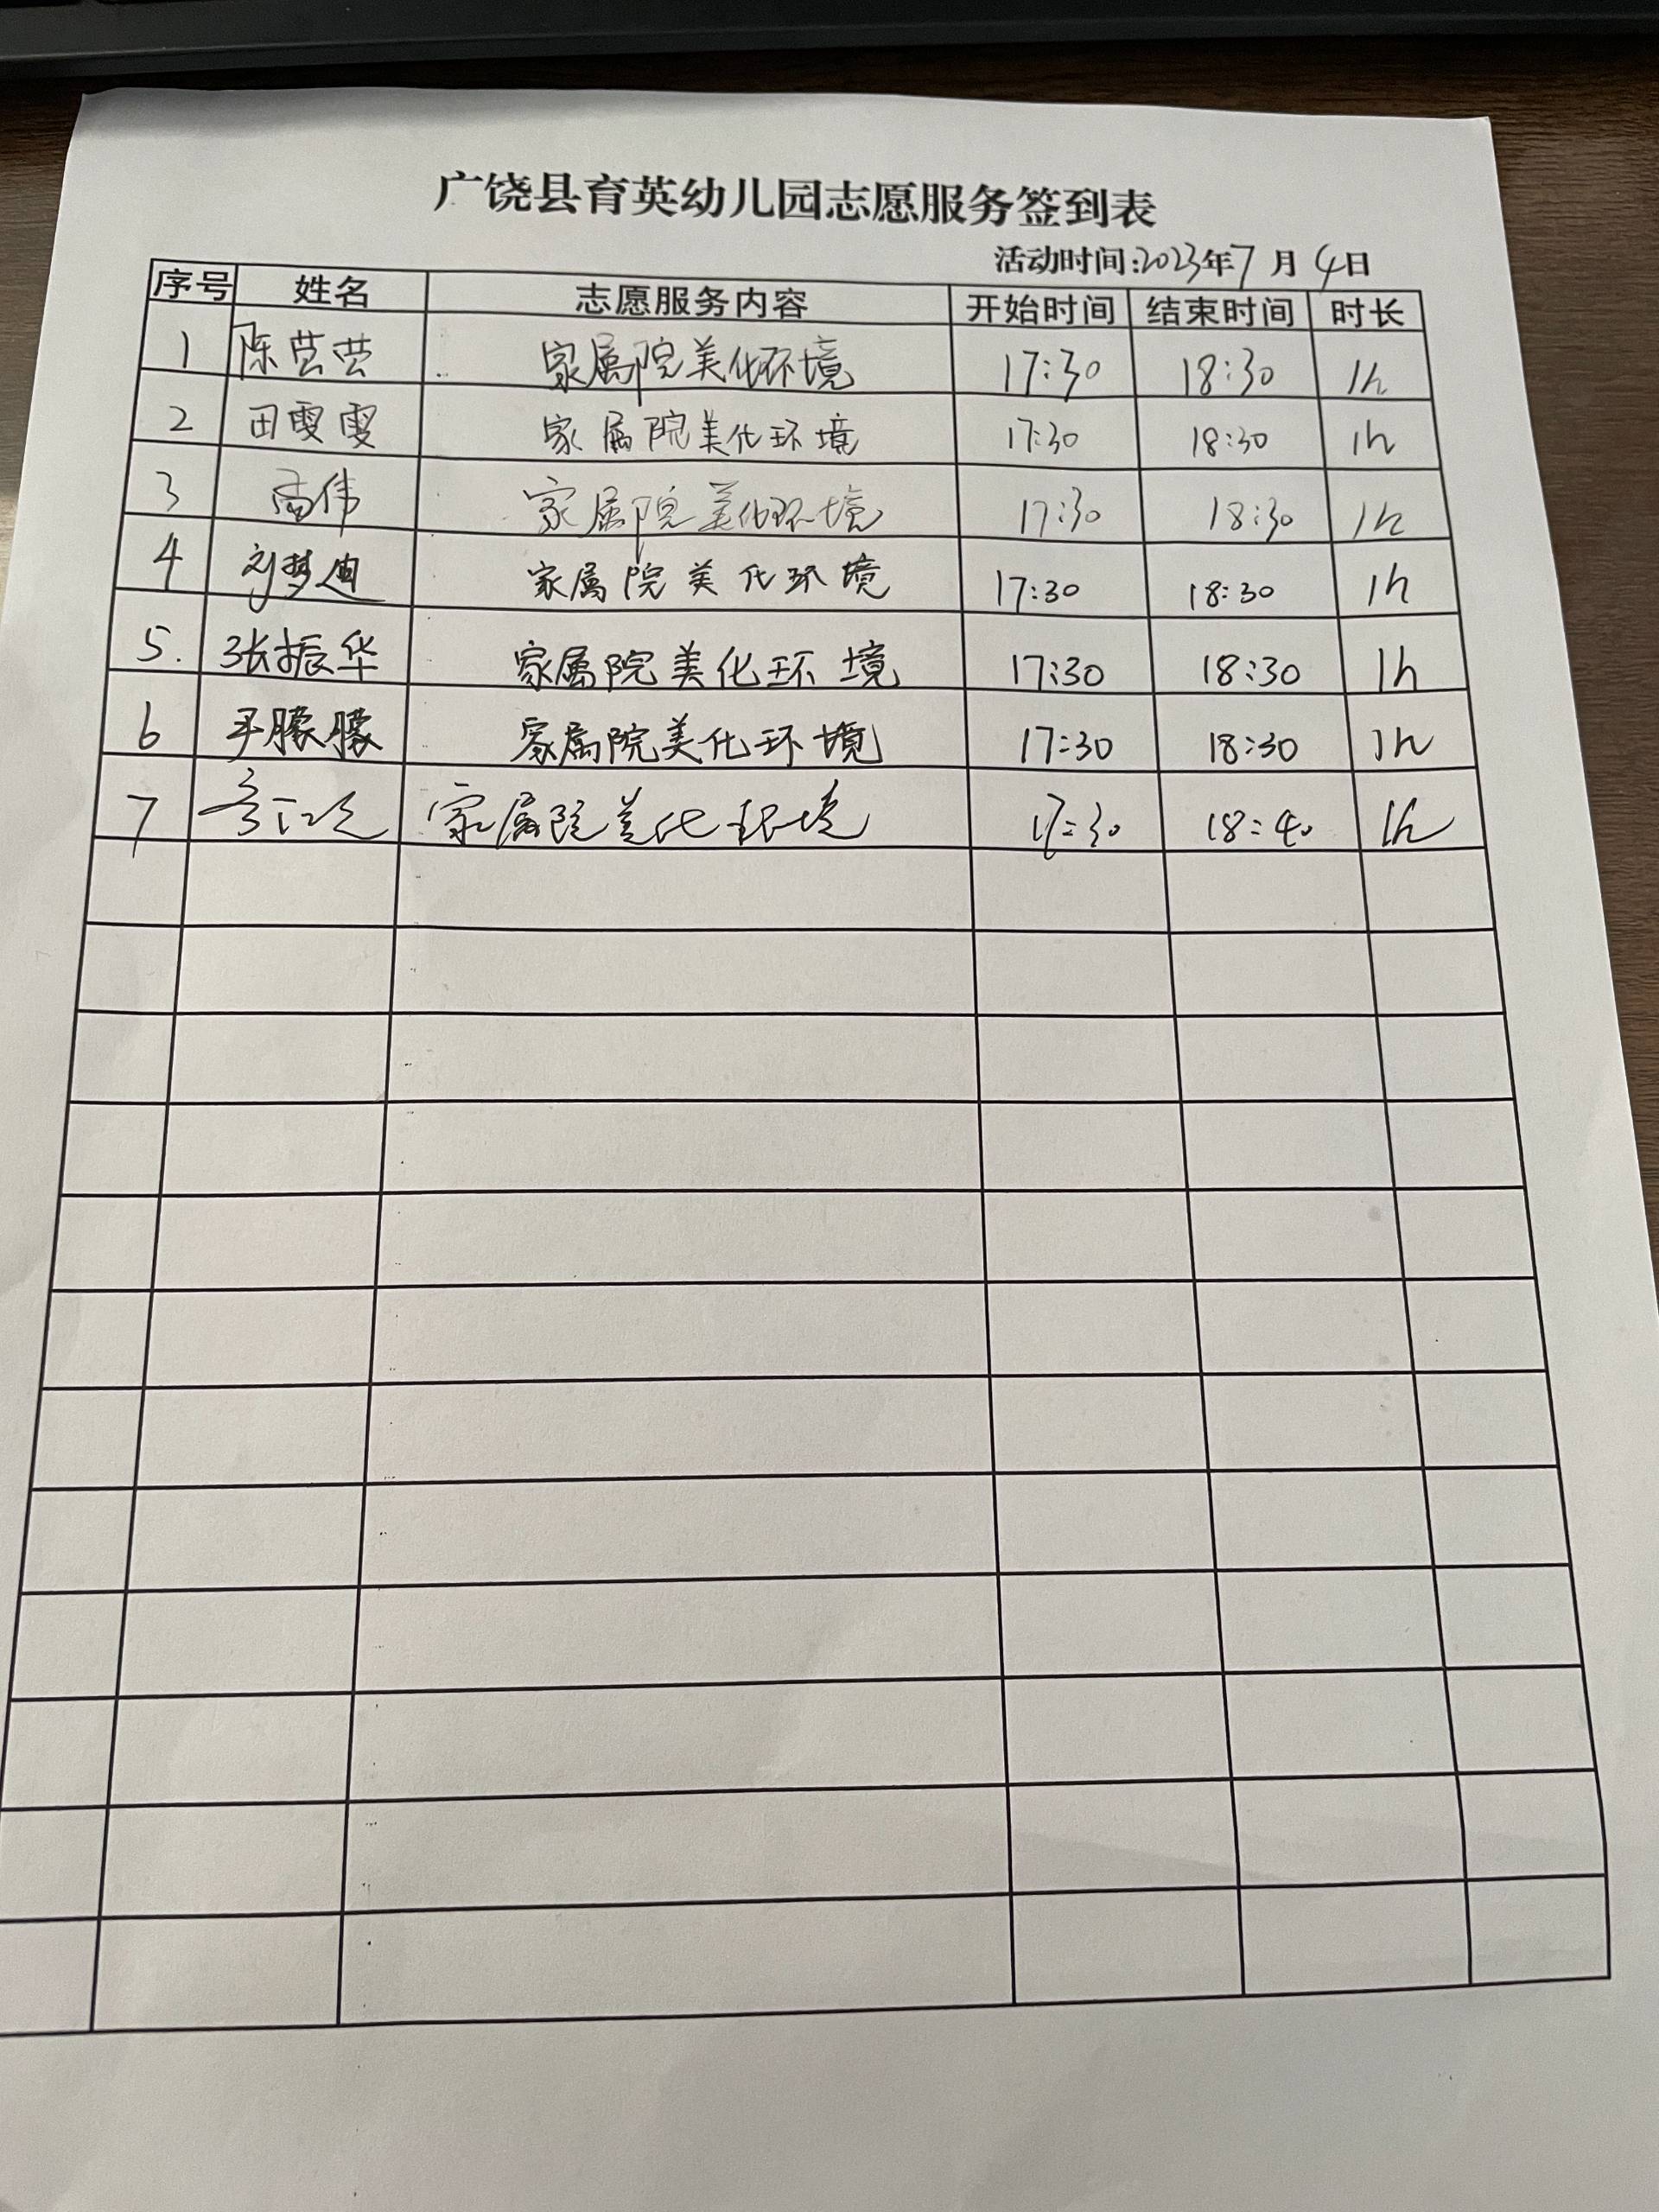 广饶县育英幼儿园志愿服务签到表
活动时间:2023年7月4日
序号 姓名 志愿服务内容 开始时间 结束时间 时长
1 陈芸芸 家属院美化环境 17:30 18:30 1h
2 田雯雯 家属院美化环境 17:30 18:30 1h
3 高伟 家属院美化环境 17:30 18:30 1h
4 刘梦迪 家属院美化环境 17:30 18:30 1h
5. 张振华 家属院美化环境 17:30 18:30 1h
6 朦朦 家属院美化环境 17:30 18:30 1h
7 家属院美化环境 17:30 18:40 1h